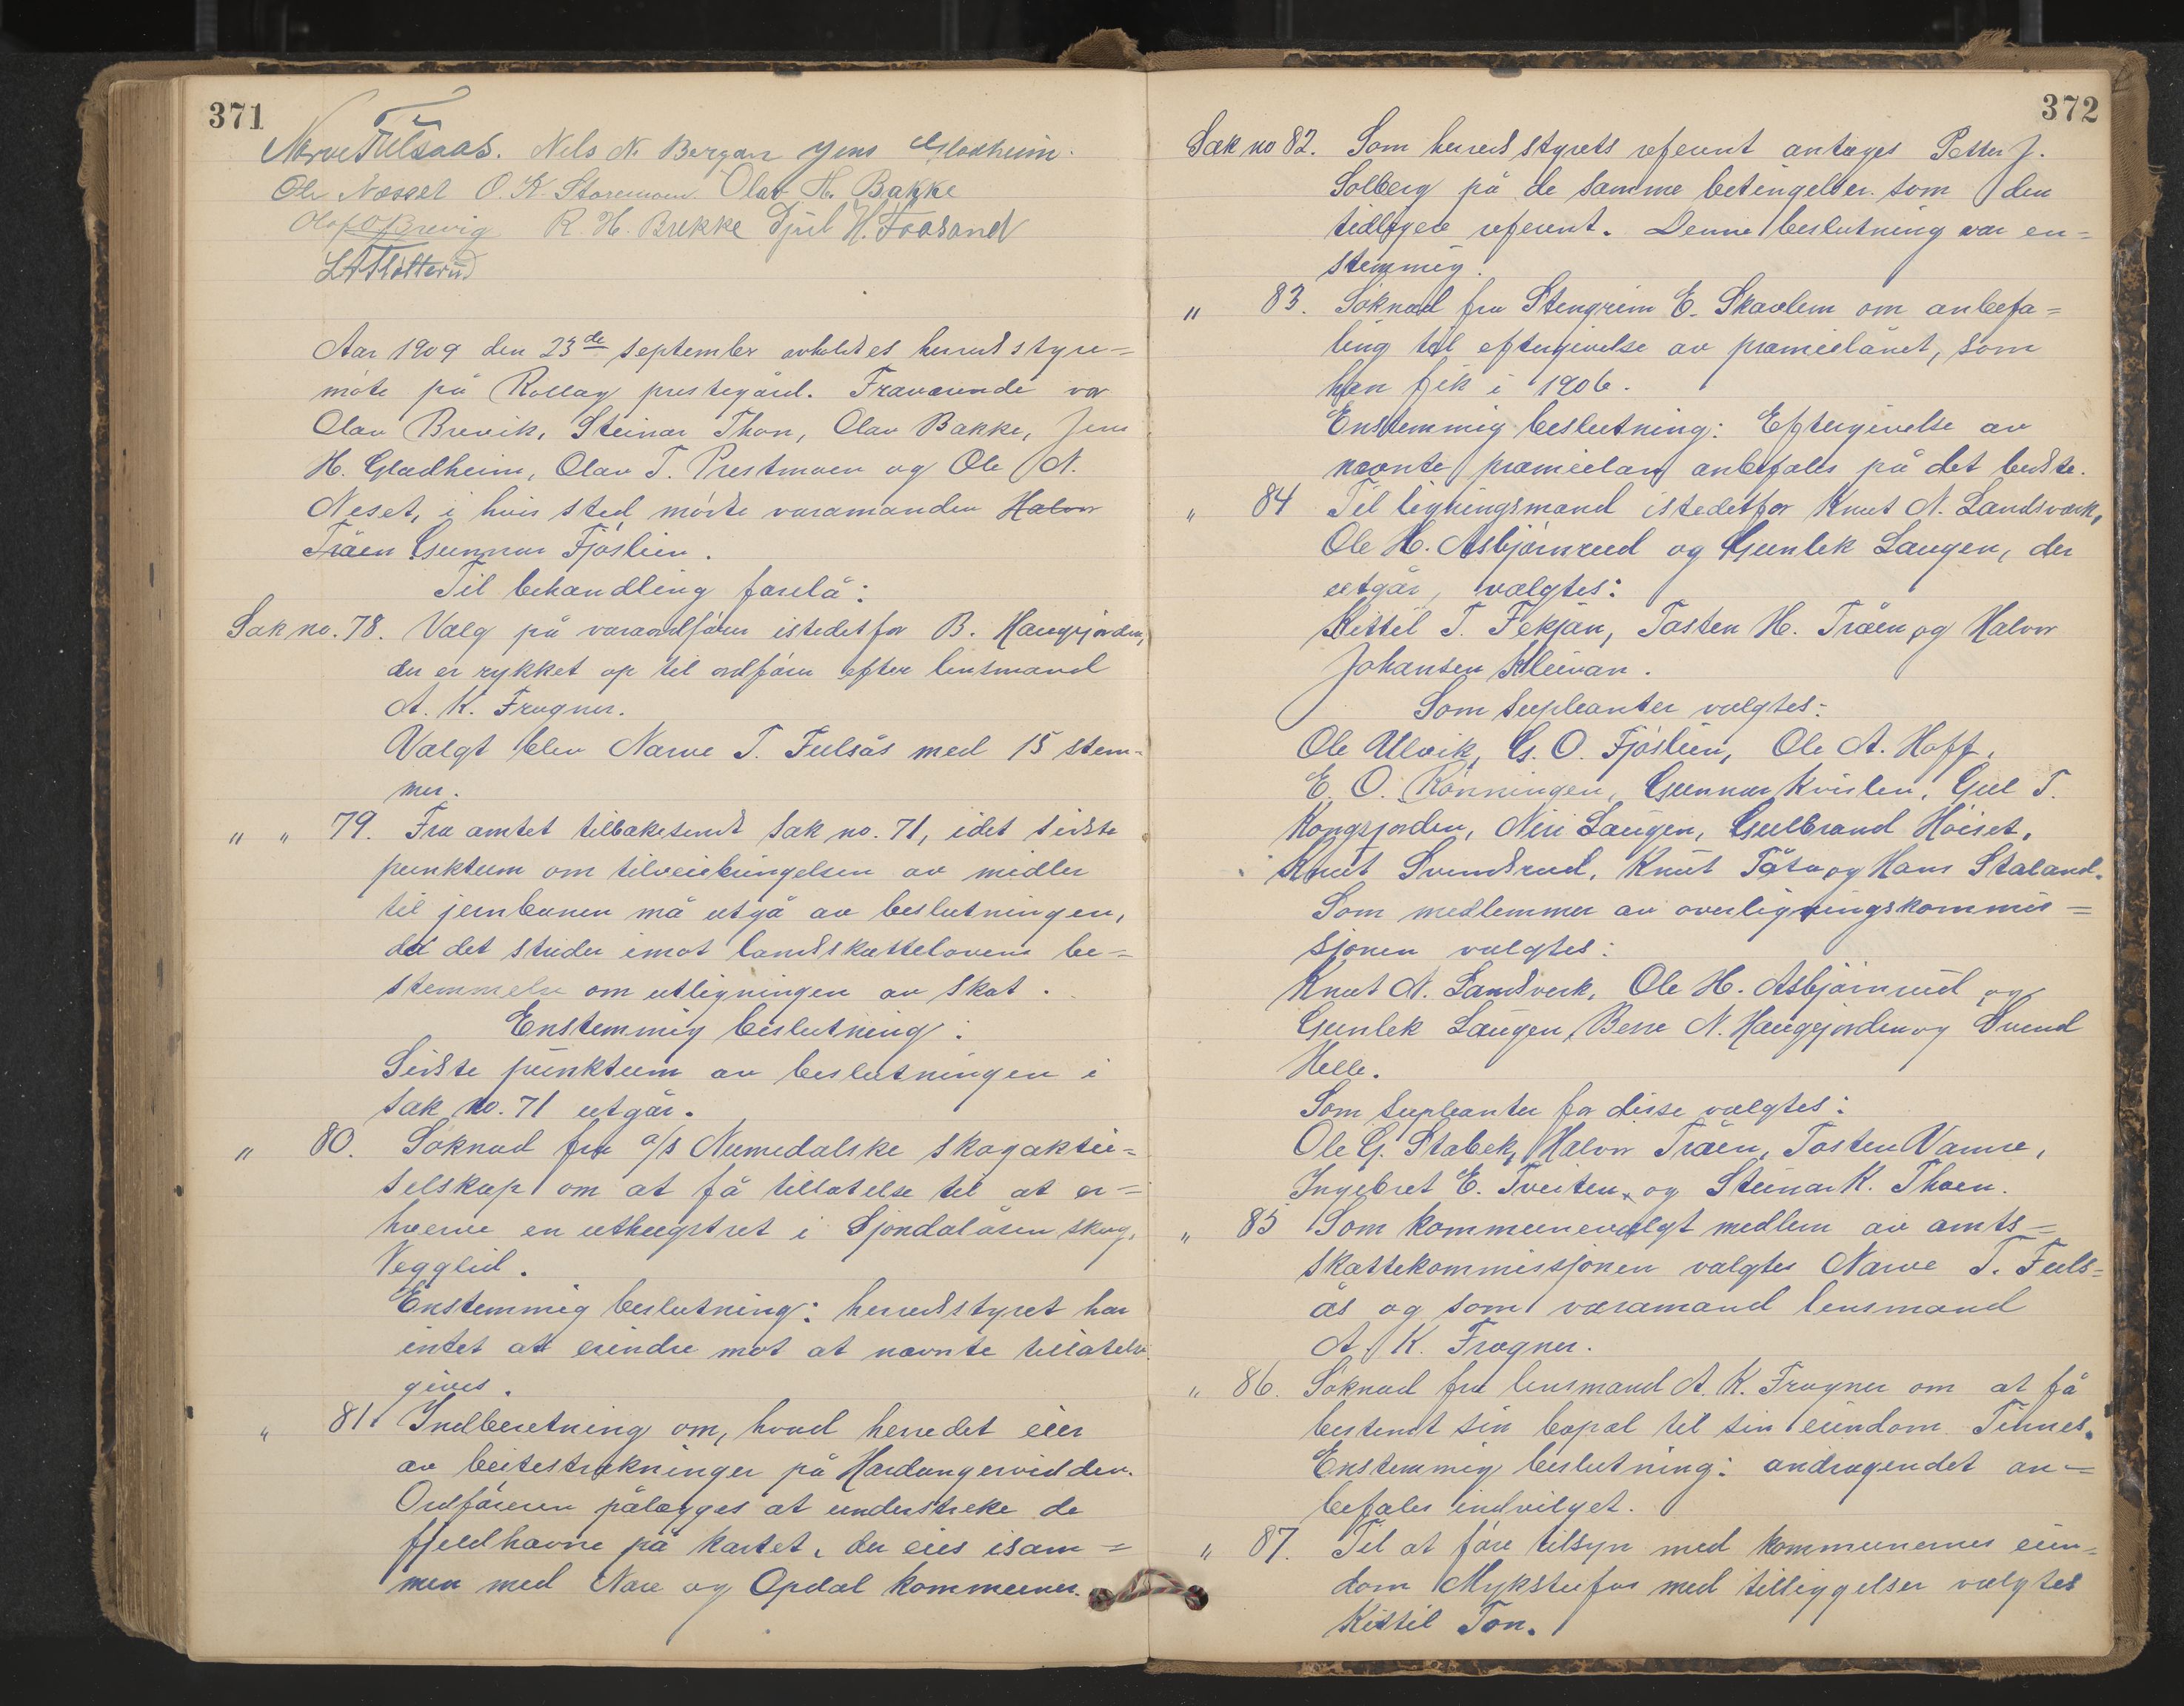 371
Narve Fulsaas. Nils N. Bergan Jens Gladheim.
Ole Nesset O. K. Storemoen Olav H. Bakke
Olaf O Brevig. R. H. Brekke Djul H. Traasand
Aar 1909 den 23de september avholdtes herredsstyre=
møte på Rollag prestegård. Fraværende var
Olav Brevik, Steinar Thon, Olav Bakke, Jens
H. Gladheim, Olav T. Prestmoen og Ole N.
Neset, i hvis sted møtte varamanden Halvor
Tråen Gunnar Fjøslien.
Til behandling forelå:
Sak no. 78. Valg på varaordfører istedetfor B. Haugejorden,
der er rykket op til ordfører efter lensmand
A. K. Frogner.
Valgt blev Narve T. Fulsås med 15 stem-
mer.
" " 79. Fra amtet tilbakesendt sak no. 71, idet sidste
punktum om tilveiebringelsen av midler
til jernbanen må utgå av beslutningen,
da det strider imot landsskattelovens be=
stemmelse om utligningen av skat.
Enstemmig beslutning:
Sidste punktum av beslutningen i
sak no. 71 utgår.
" 80. Søknad fra a/s Numedalske skogaktie=
selskap om at få tillatelse til at er=
hverve en uthugstret i Sjondalåsen skog,
Vegglid.
Enstemmig beslutning: herredsstyret har
intet at erindre mot at nævnte tillatelse
gives.
" 81. Indberetning om, hvad herredet eier
av beitestrekninger på Hardangervidden.
Ordføreren pålægges at understreke de
fjeldhavne på kartet, der eies isam=
men med Nore og Opdal kommuner.
372
Sak no 82. Som herredsstyrets referent antages Petter J.
Solberg på de samme betingelser som den
tidligere referent. Denne beslutning var en=
stemmig.
" 83. Søknad fra Stengrim E. Skavlem om anbefa=
ling til eftergivelse av præmielånet, som
han fik i 1906.
Enstemmig beslutning: Eftergivelse av
nævnte præmielån anbefales på det bedste.
" 84 Til ligningsmænd istedetfor Knut N. Landsværk,
Ole H. Asbjørnrud og Gunlek Laugen, der
utgår, valgtes:
Kittil T. Fekjan, Tosten H. Tråen og Halvor
Johansen Kleivan.
Som supleanter valgtes:
Ole Ulvik, G. O. Fjøslien, Ole A. Hoff,
E. O. Rønningen, Gunnar Kvislen, Gul T.
Kongsjorden, Niri Laugen, Gulbrand Høiset,
Knut Svendsrud, Knut Tåtø og Hans Staland.
Som medlemmer av overligningskommis=
sjonen valgtes:
Knut N. Landsverk, Ole H. Asbjørnrud og
Gunlek Laugen, Berre N. Haugejorden og Svend
Helle.
Som supleanter for disse valgtes:
Ole G. Stabek, Halvor Tråen, Tosten Vanne,
Ingebret E. Tveiten, og Steinar K. Thoen.
" 85 Som kommunevalgt medlem av amts=
skattekommissjonen valgtes Narve T. Fuls=
ås og som varamand lensmand
A. K. Frogner.
" 86. Søknad fra lensmand A. K. Frogner om at få
bestemt sin bopæl til sin eiendom Tinnes.
Enstemmig beslutning: andragendet an=
befales indvilget.
" 87. Til at føre tilsyn med kommunernes eien=
dom Mykstufos med tilliggelser valgtes
Kittil Ton.